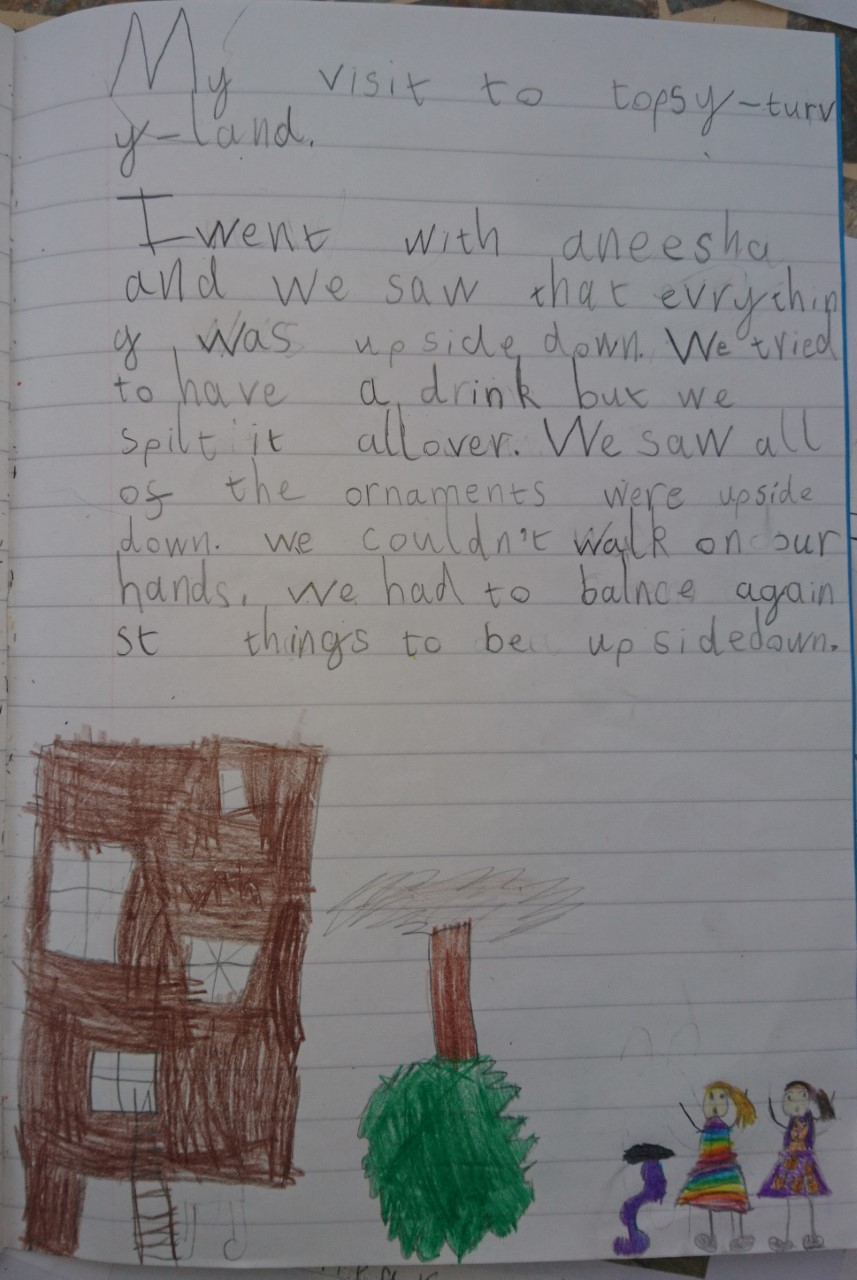 My visit to topsy-turv
y-land.
I went with aneesha
and we saw that evrythin
g was upside down. We tried
to have a drink but we
spilt it allover. We saw all
of the ornaments were upside
down. we couldn't walk on our
hands, we had to balnce again
st things to be upsidedown.